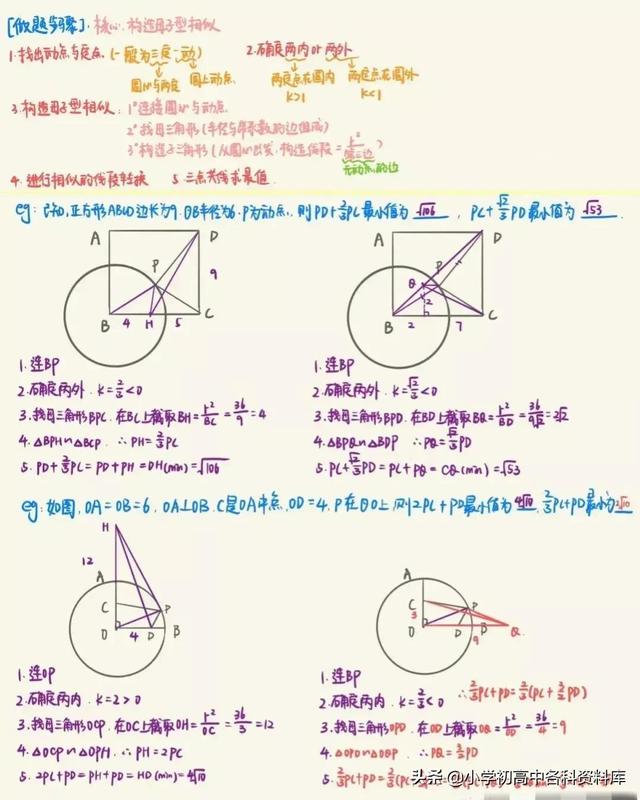 [做题步骤]. 核心. 构造母子型相似
1. 找出动点与定点 (一般为三定一动)
圆心与两定 圆上动点
2. 确定两内 or 两外
两定点在圆内 K>1
两定点在圆外 K<1
3. 构造母子型相似: 1° 连接圆心与动点
2° 找母三角形 (半径与带系数的边组成)
3° 构造子三角形 (从圆心出发, 构造线段 = r²/第三边)
无动点的边
4. 进行相似的线段转换 5. 三点共线求最值.
eg: 已知, 正方形ABCD边长为9. ⊙B半径为6. P为动点, 则PD+2/3PC最小值为 √106 , PC+√2/3PD最小值为 √53 .
A D P 9 B 4 H 5 C
A D P Q 2 B 2 7 C
1. 连BP
2. 确定两外. K=2/3<0
3. 找母三角形BPC. 在BC上截取BH=r²/BC=36/9=4
4. △BPH∽△BCP ∴PH=2/3PC
5. PD+2/3PC=PD+PH=DH(min)=√106
1. 连BP
2. 确定两外. K=√2/3<0
3. 找母三角形BPD. 在BD上截取BQ=r²/BD=36/9√2=2√2
4. △BPQ∽△BDP ∴PQ=√2/3PD
5. PC+√2/3PD=PC+PQ=CQ(min)=√53
eg: 如图, OA=OB=6, OA⊥OB. C是OA中点, OD=4. P在⊙O上, 则2PC+PD最小值为 4√10 , 2/3PC+PD最小为 2√10
H 12 A C P O 4 D B
A C P 3 O D B 9 Q
1. 连OP
2. 确定两内. K=2>0
3. 找母三角形OCP. 在OC上截取OH=r²/OC=36/3=12
4. △OCP∽△OPH ∴PH=2PC
5. 2PC+PD=PH+PD=HD(min)=4√10
1. 连BP
2. 确定两内. K=2/3<0 ∴2/3PC+PD=2/3(PC+3/2PD)
3. 找母三角形OPD. 在OD上截取OQ=r²/OD=36/4=9
4. △OPD∽△OQP ∴PQ=3/2PD
5. 2/3PC+PD=2/3(PC+
头条 @小学初高中各科资料库